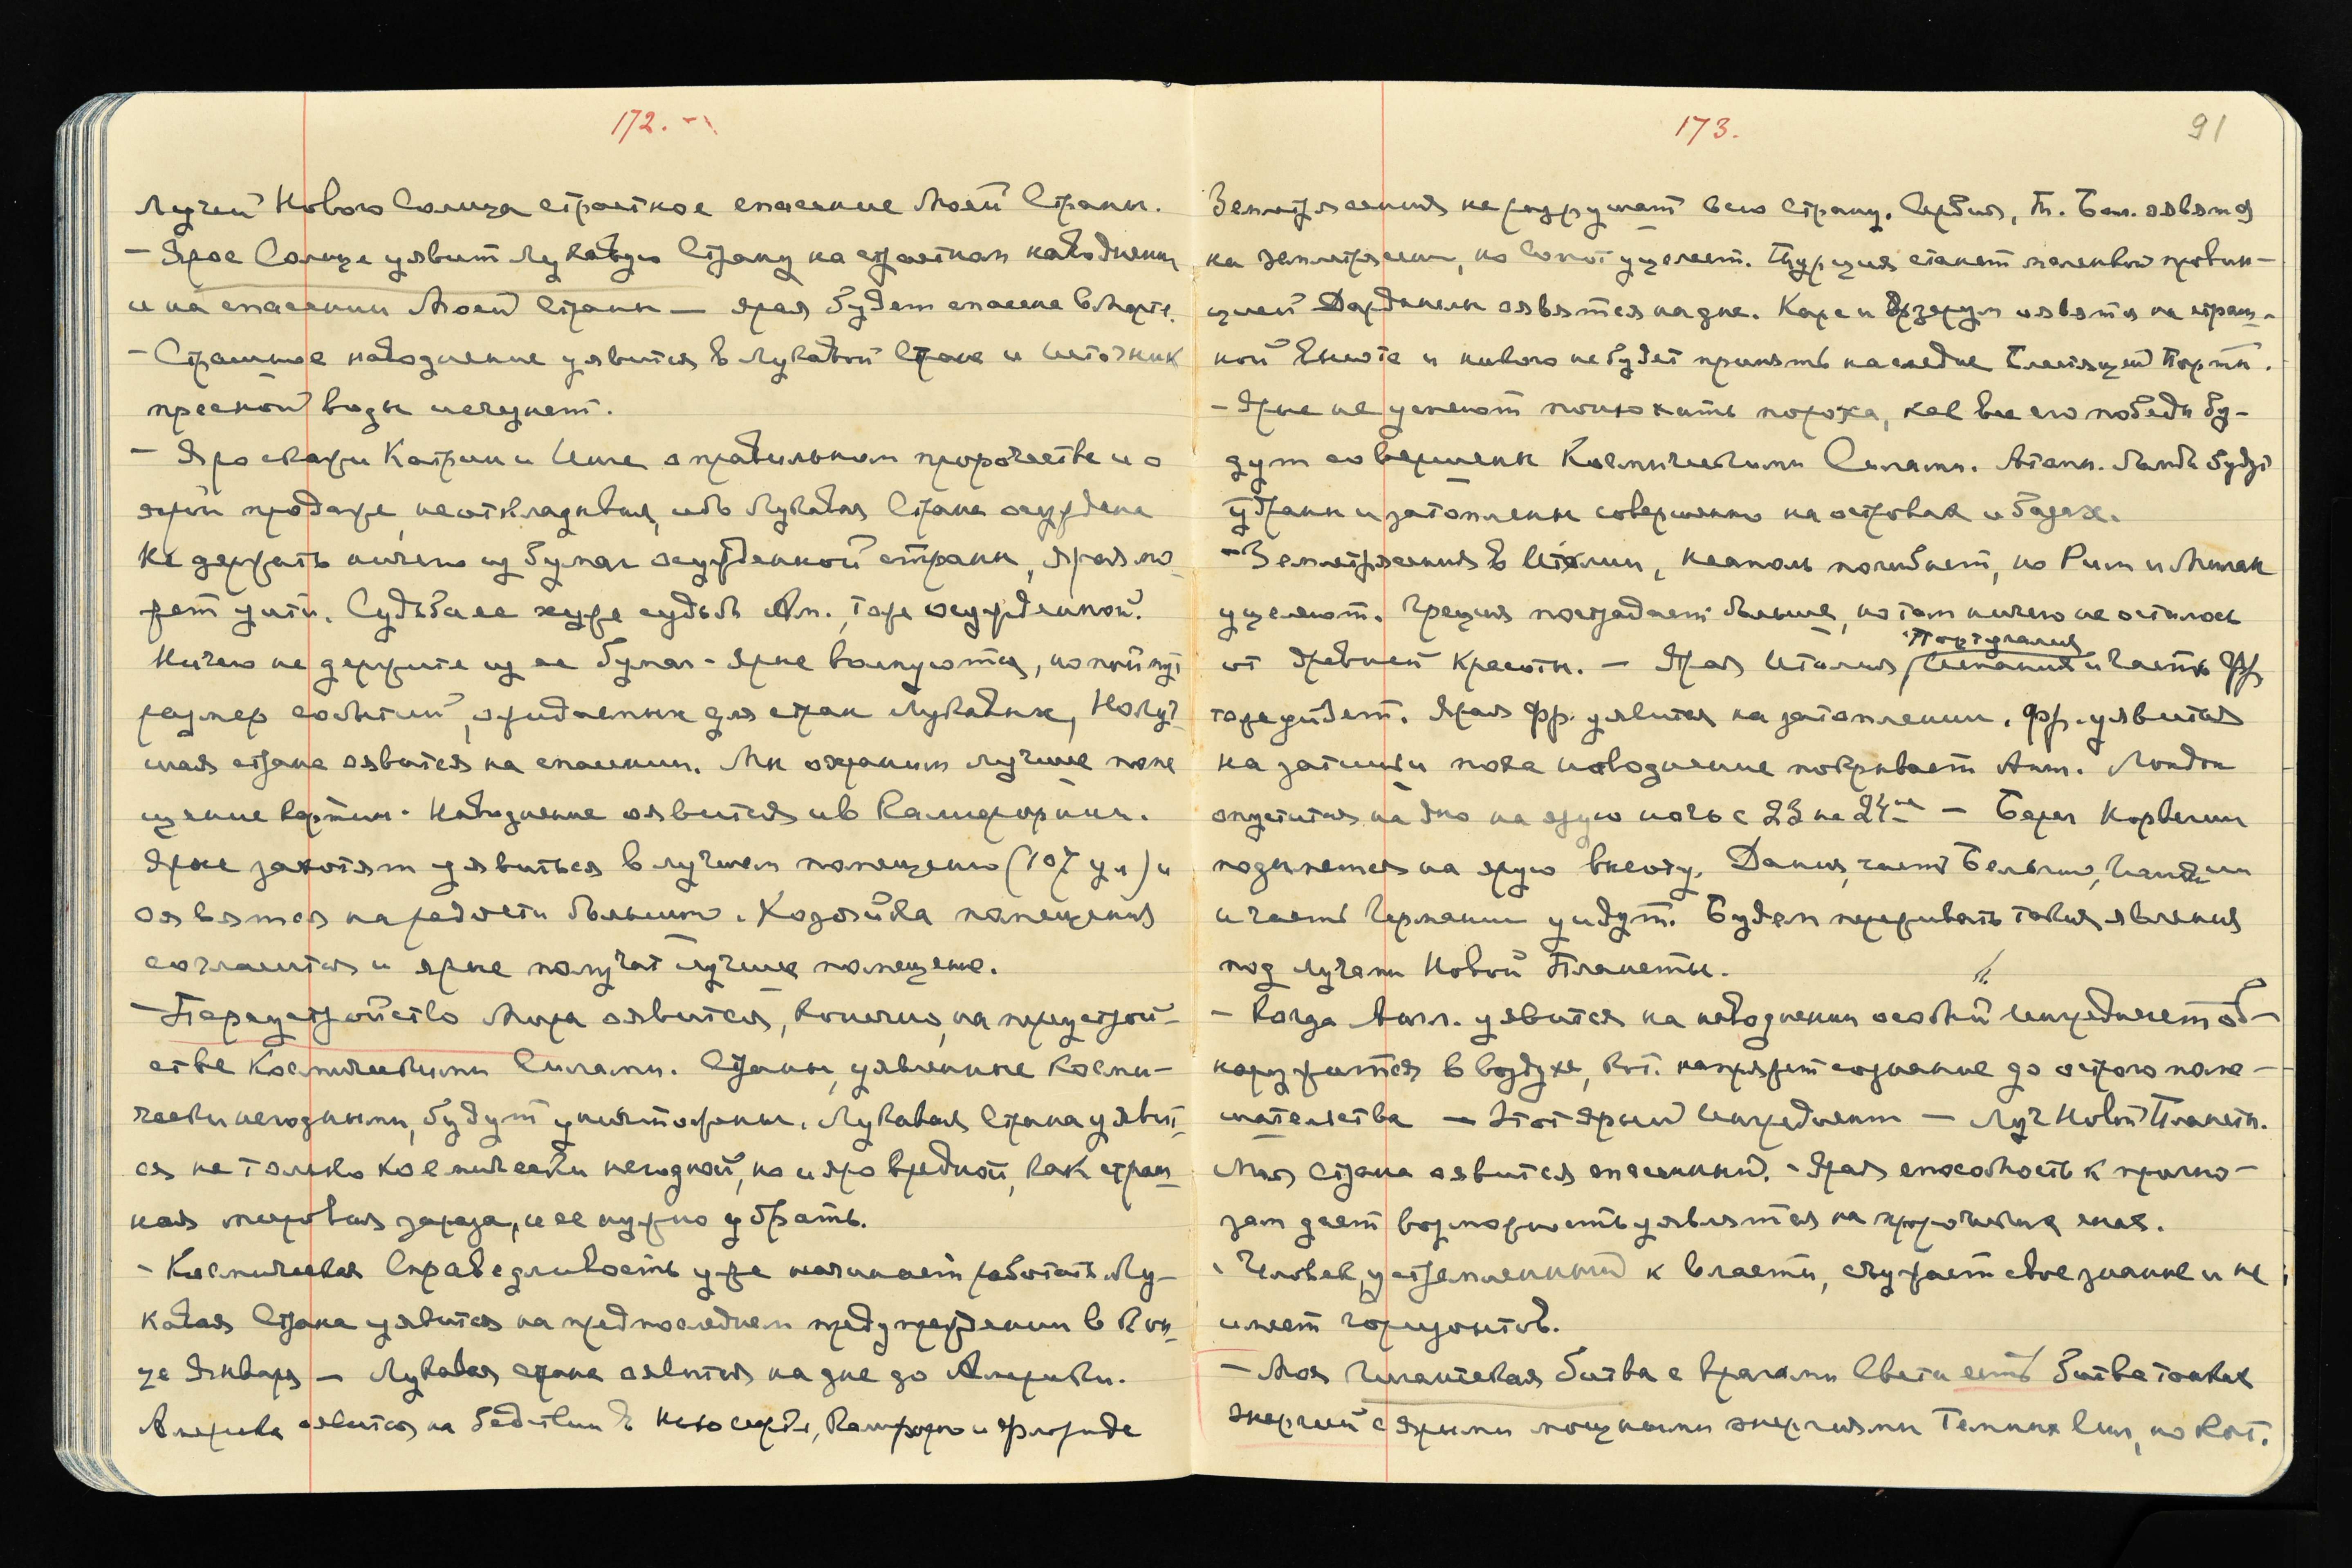 172.
Лучей Нового Солнца страстное спасение Моей Страны.
— Ярое Солнце уявит Лукавую Страну на страстном наводнении
и на спасении Моей Страны — ярая будет спасена в Марте.
— Страшное наводнение уявится в Лукавой Стране и источник
пресной воды исчезнет.
— Яро скажи Катрин и Инге о правильном пророчестве и о
ярой продаже, неоткладывая, ибо Лукавая Страна осуждена
Не держать ничего из бумаг осужденной страны, ярая мо-
жет уйти. Судьба ее хуже судьбы Ам., тоже осужденной.
Ничего не держите из ее бумаг - ярые волнуются, но поймут
размер событий, ожидаемых для стран Лукавых, Но Луч-
шая страна оявится на спасении. Мы охраним лучшее поме
щение картин. Наводнение оявится и в Калифорнии.
Ярые захотят уявиться в лучшем помещении (107 ул) и
оявятся на радости большой. Хозяйка помещения
согласится и ярые получат лучшее помещение.
— Переустройство Мира оявится, конечно, на переустрой-
стве Космическими Силами. Страны, уявленные косми-
чески негодными, будут уничтожены. Лукавая Страна уявит-
ся не только космически негодной, но и яро вредной, как страш-
ная мировая зараза, и ее нужно убрать.
- Космическая Справедливость уже начинает работать. Лу-
кавая Страна уявится на предпоследнем предупреждении в кон-
це Января — Лукавая страна оявится на дне до Америки.
Америка оявится на бедствии в Нью Джерси, Калифорн и Флориде
173. 91
Землетрясения не разрушат всю страну. Сербия, оявятся
на землетрясении, но уцелеет. Турция станет маленькой провин-
цией Дарданелы оявятся на дне. Карс и Эрзерум оявятся на страш-
ной высоте и никого не будет принять наследие Блестящей Порты.
- Ярые не успеют понюхать пороха, как все его победы бу-
дут совершены Космическими Силами. Атомн. бомбы будут
убраны и затоплены совершенно на островах и базах.
- Землетрясения в Италии, Неаполь погибнет, но Рим и Милан
уцелеют. Греция пострадает больше, но там ничего не осталось
от древней красоты. — Ярая Италия, Португалия, Испания и часть Фр.
тоже уйдет. Ярая Фр. уявится на затоплении. Фр. уявится
на затишьи пока наводнение покрывает Англ. Лондон
опустится на дно на ярую ночь с 23 на 24ое — Берег Норвегии
подымется на ярую высоту. Дания, часть Бельгии, Голландии
и часть Германии уйдут. Будем переживать такия явления
под лучами Новой Планеты.
- Когда Англ. уявится на наводнении особый Ингредиент об-
наружится в воздухе, кот. напряжет сознание до острого поме-
шательства — Этот ярый Ингредиент — Луч Новой Планеты.
Моя Страна оявится спасенной. - Ярая способность к прогно-
зам дает возможность уявляться на пророческих снах.
- Человек, устремленный к власти, сужает свое знание и не
имеет горизонтов.
— Моя Гигантская битва с врагами Света есть битва тонких
энергий с ярыми мощными энергиями Темных Сил, но кот.